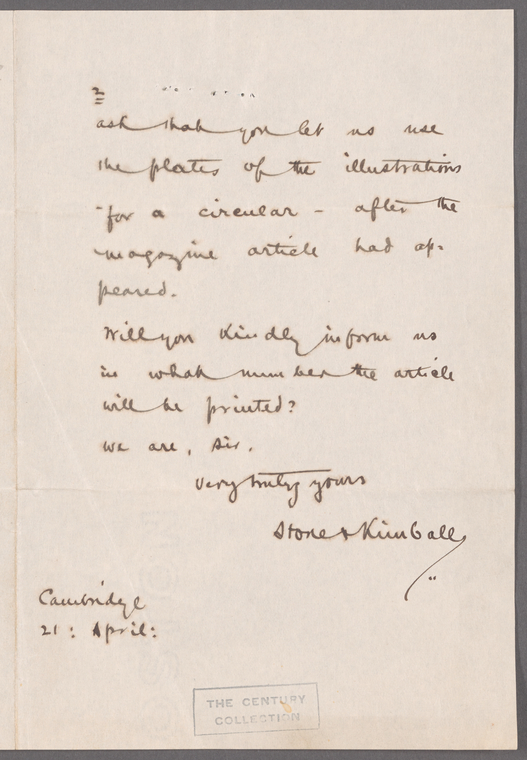 2
ask that you let us use
the plates of the illustrations
for a circular - after the
magazine article had ap=
peared.
Will you kindly inform us
in what number the article
will be printed?
We are, Sir,
Very truly yours
Stone & Kimball
Cambridge
21: April:
THE CENTURY
COLLECTION